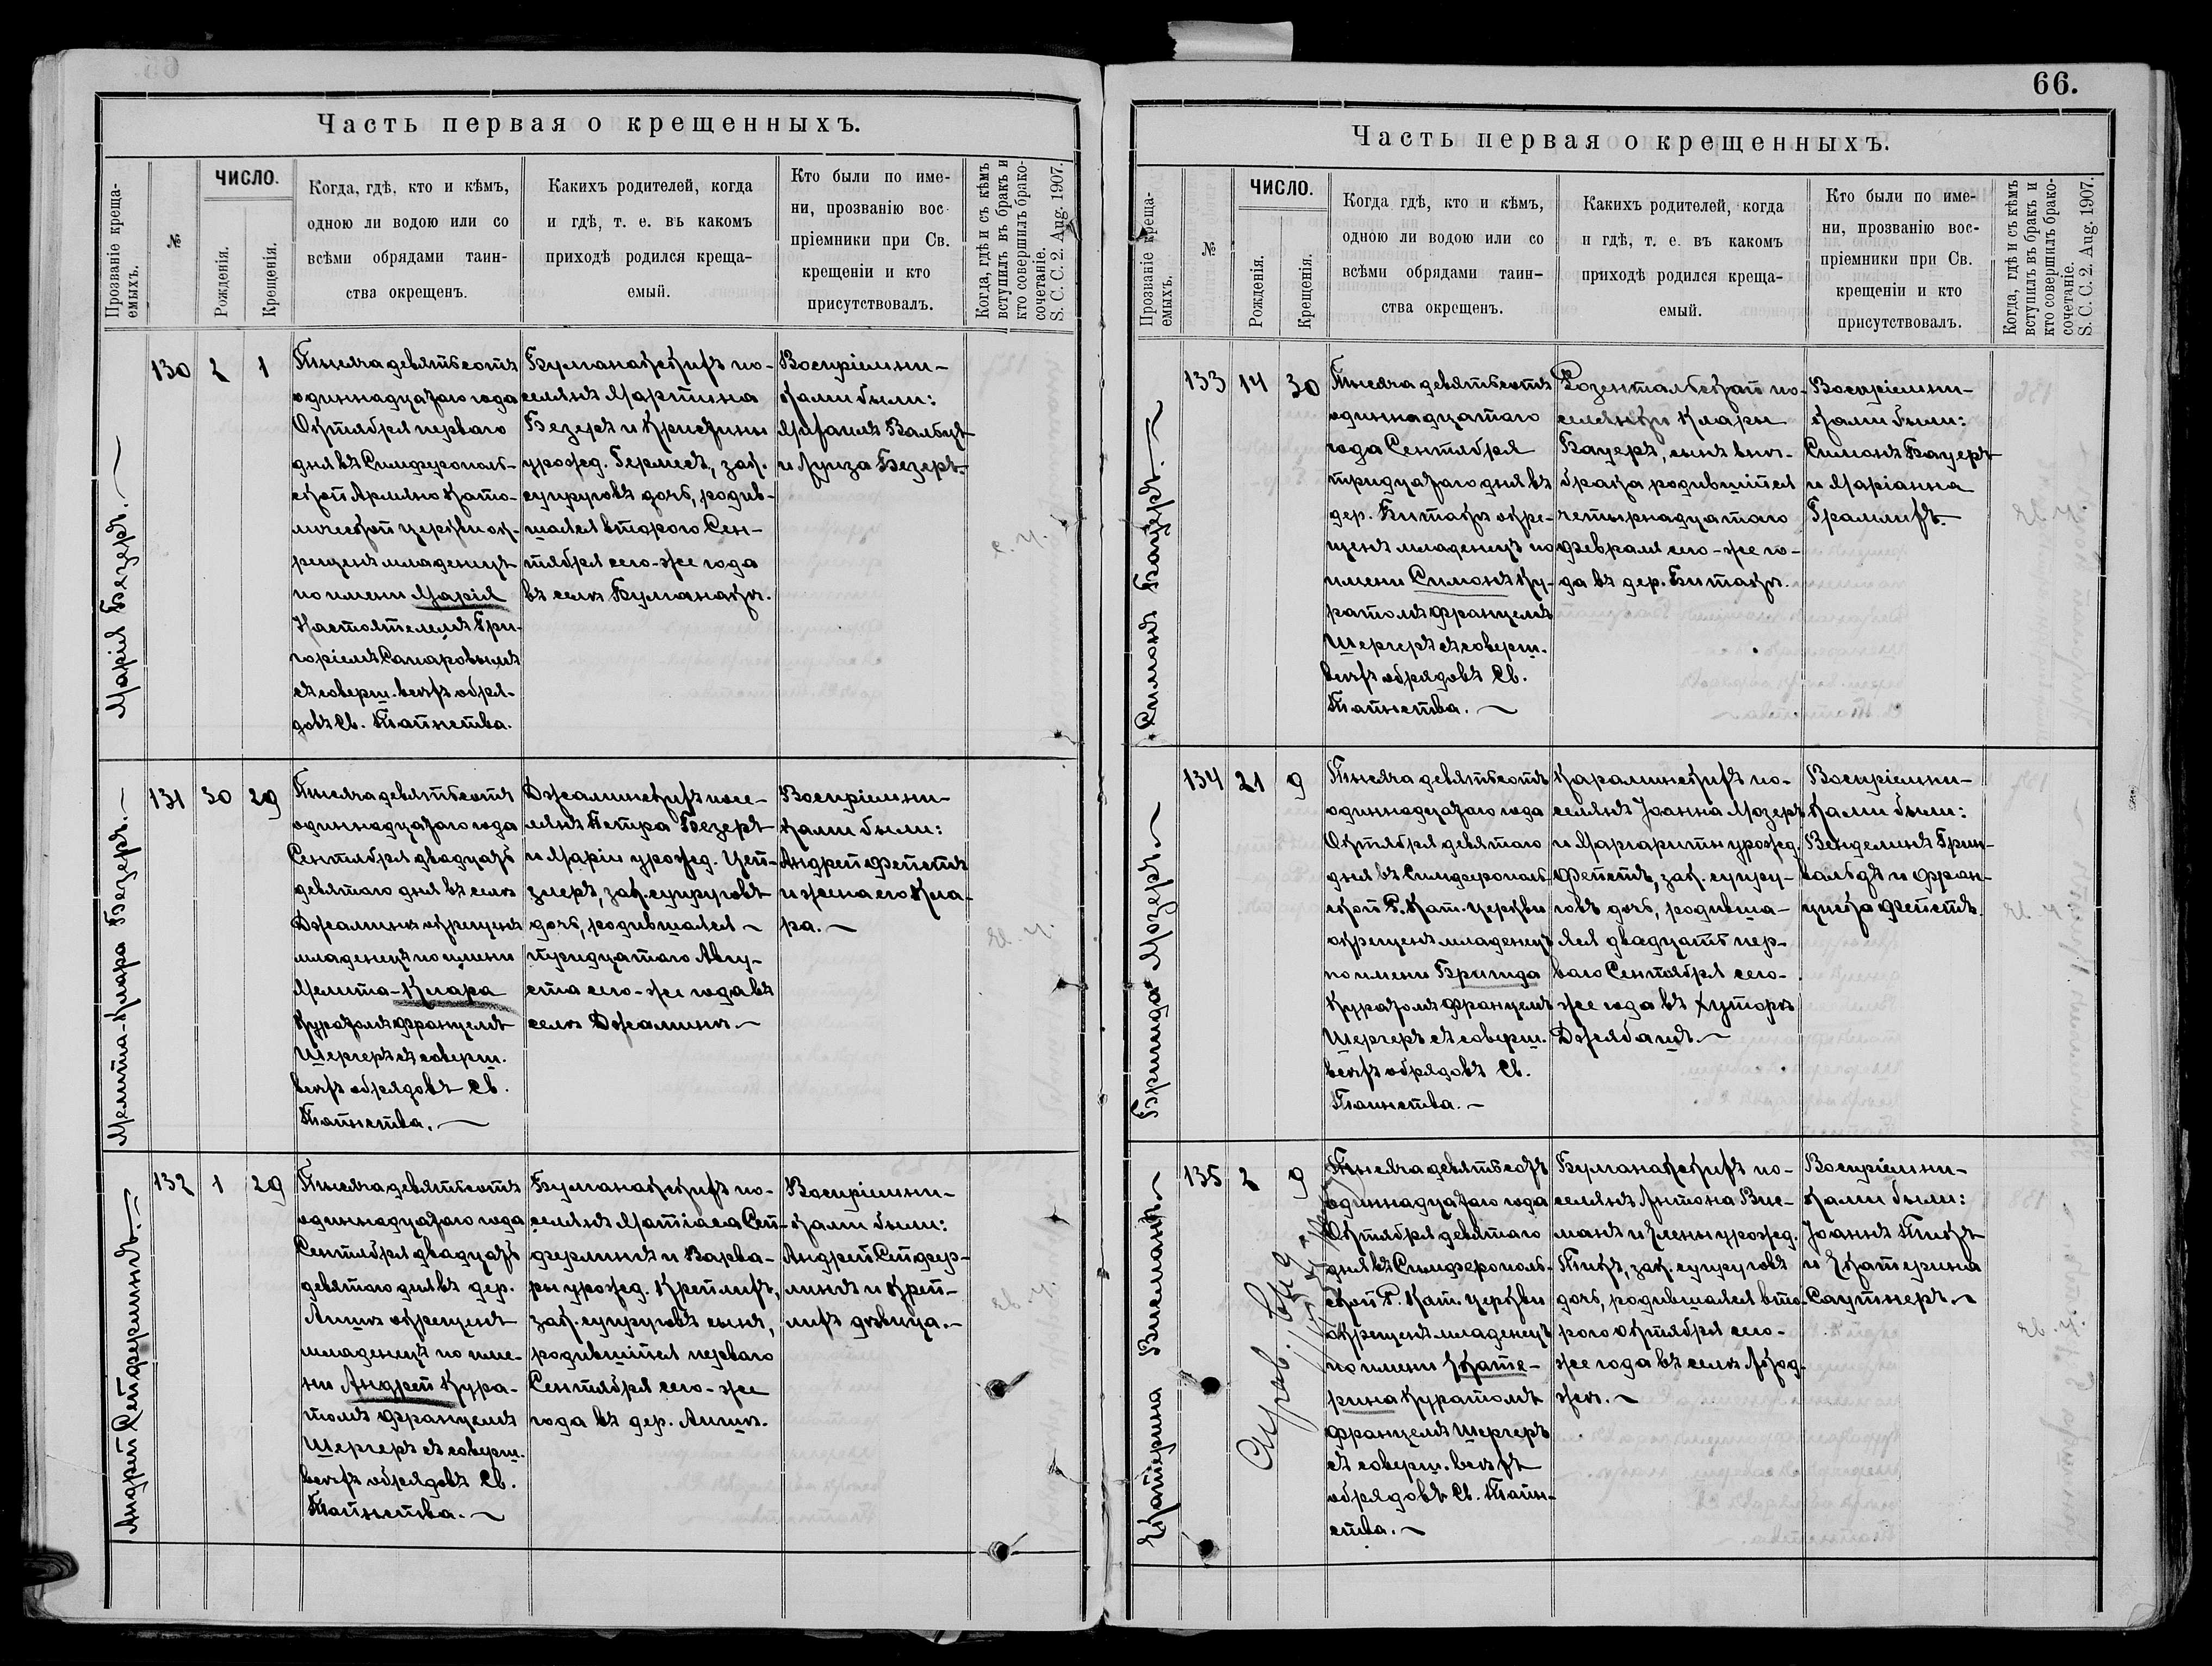 66.
Часть первая о крещенныхъ.
Прозваніе креща-
емыхъ.
№
ЧИСЛО.
Рожденія.
Крещенія.
Когда, гдѣ, кто и кѣмъ,
одною ли водою или со
всѣми обрядами таин-
ства окрещенъ.
Какихъ родителей, когда
и гдѣ, т. е. въ какомъ
приходѣ родился креща-
емый.
Кто были по име-
ни, прозванію вос-
пріемники при Св.
крещеніи и кто
присутствовалъ.
Когда, гдѣ и съ кѣмъ
вступилъ въ бракъ и
кто совершилъ брако-
сочетаніе.
S. C. C. 2. Aug. 1907.
Марія Безеръ.
130
2
1
Тысяча девятьсотъ
одиннадцатаго года
Октября перваго
дня въ Симферополь-
ской Армяно Като-
лической церкви ок-
рещенъ младенецъ
по имени Марія
Настоятелемъ Гри-
горіемъ Сапаровымъ
съ соверш. всѣхъ обря-
довъ Св. Таинства.
Булганакскихъ по-
селянъ Мартина
Безеръ и Кристины
урожд. Гермесъ, зак.
супруговъ дочь, родив-
шаяся второго Сен-
тября сего-же года
въ селѣ Булганакѣ.
Воспріемни-
ками были:
и Луиза Безеръ.
Мелита-Клара Безеръ.
131
30
29
Тысяча девятьсотъ
одиннадцатаго года
Сентября двадцать
девятаго дня въ селѣ
Джаминъ окрещенъ
младенецъ по имени
Мелита-Клара
Куратомъ Францемъ
Шергеръ съ соверш.
всѣхъ обрядовъ Св.
Таинства.
Джаминскихъ посе-
лянъ Петра Безеръ
и Маріи урожд. Цей-
злеръ, зак. супруговъ
дочь, родившаяся
тридцатаго Авгу-
ста сего-же года въ
селѣ Джаминѣ.
Воспріемни-
ками были:
Андрей Фейстъ
и жена его Кла-
ра.
Андрей Сейферлингъ.
132
1
29
Тысяча девятьсотъ
одиннадцатаго года
Сентября двадцать
девятаго дня въ дер.
окрещенъ
младенецъ по име-
ни Андрей Кура-
томъ Францемъ
Шергеръ съ соверш.
всѣхъ обрядовъ Св.
Таинства.
Булганакскихъ по-
селянъ Матіаса Сей-
ферлингъ и Варва-
ры урожд. Крейлихъ,
зак. супруговъ сынъ,
родившійся перваго
Сентября сего-же
года въ дер.
Воспріемни-
ками были:
Андрей Сейфер-
лингъ и Крей-
лихъ дѣвица.
Часть первая о крещенныхъ.
Прозваніе креща-
емыхъ.
№
ЧИСЛО.
Рожденія.
Крещенія.
Когда гдѣ, кто и кѣмъ,
одною ли водою или со
всѣми обрядами таин-
ства окрещенъ.
Какихъ родителей, когда
и гдѣ, т. е. въ какомъ
приходѣ родился креща-
емый.
Кто были по име-
ни, прозванію вос-
пріемники при Св.
крещеніи и кто
присутствовалъ.
Когда, гдѣ и съ кѣмъ
вступилъ въ бракъ и
кто совершилъ брако-
сочетаніе.
S. C. C. 2. Aug. 1907.
Симонъ Бауеръ.
133
14
30
Тысяча девятьсотъ
одиннадцатаго
года Сентября
тридцатаго дня въ
дер. Битакъ окре-
щенъ младенецъ по
имени Симонъ Ку-
ратомъ Францемъ
Шергеръ съ соверш.
всѣхъ обрядовъ Св.
Таинства.
Розентальской по-
селянки Клары
Бауеръ, сынъ внѣ-
брака родившійся
четырнадцатаго
февраля сего-же го-
да въ дер. Битакѣ.
Воспріемни-
ками были:
Симонъ Бауеръ
и Маріанна
Грамлихъ.
Бригида Мозеръ.
134
21
9
Тысяча девятьсотъ
одиннадцатаго года
Октября девятаго
дня въ Симферополь-
ской Р. Кат. церкви
окрещенъ младенецъ
по имени Бригида
Куратомъ Францемъ
Шергеръ съ соверш.
всѣхъ обрядовъ Св.
Таинства.
Караминскихъ по-
селянъ Іоанна Мозеръ
и Маргариты урожд.
Фейстъ, зак. супру-
говъ дочь, родивша-
яся двадцать пер-
ваго Сентября сего-
же года въ хуторѣ
Джабашъ.
Воспріемни-
ками были:
Венделинъ Грин-
вальдъ и Фран-
циска Фейстъ.
Екатерина Висманъ
135
2
9
Тысяча девятьсотъ
одиннадцатаго года
Октября девятаго
дня въ Симферополь-
ской Р. Кат. церкви
окрещенъ младенецъ
по имени Екате-
рина Куратомъ
Францемъ Шергеръ
съ соверш. всѣхъ
обрядовъ Св. Таин-
ства.
Булганакскихъ по-
селянъ Антона Вис-
манъ и Елены урожд.
Тикъ, зак. супруговъ
дочь, родившаяся вто-
рого Октября сего-
же года въ селѣ
Воспріемни-
ками были:
Іоаннъ Тикъ
и Екатерина
Саутнеръ.